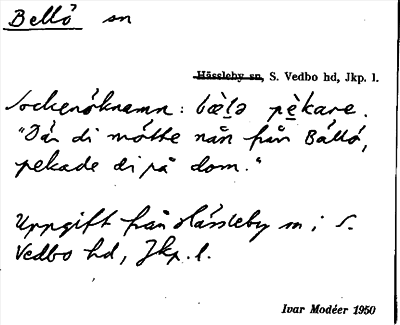 Bellö sn
Hässleby sn, S. Vedbo hd, Jkp. l.
Sockenöknamn: bæ̀lə pèkare.
"Där di mötte nån från Bällö,
pekade di på dom."
Uppgift från Hässleby sn i S.
Vedbo hd, Jkp. l.
Ivar Modéer 1950